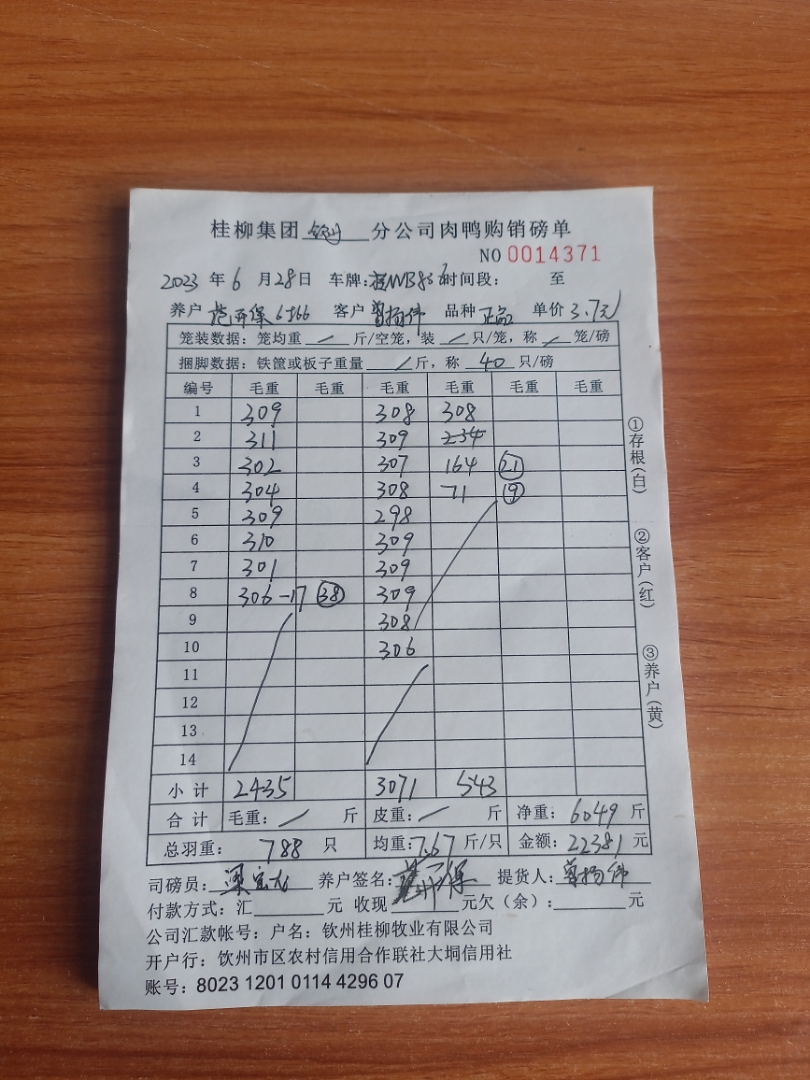 桂柳集团 钦州 分公司肉鸭购销磅单
NO 0014371
2023 年 6 月 28 日 车牌: 时间段: 至
养户 6566 客户 曾扬伟 品种 正品 单价 3.7元
笼装数据：笼均重 / 斤/空笼，装 / 只/笼，称 / 笼/磅
捆脚数据：铁筐或板子重量 / 斤，称 40 只/磅
编号 毛重 毛重 毛重 毛重 毛重 毛重
1 309 308 308
2 311 309 234
3 302 307 164 21
4 304 308 71 19
5 309 298
6 310 309
7 301 309
8 306-17 38 309
9 308
10 306
11
12
13
14
小计 2435 3071 543
合计 毛重： / 斤 皮重： / 斤 净重： 6049 斤
总羽重： 788 只 均重: 7.67 斤/只 金额: 22381 元
司磅员: 养户签名: 提货人: 曾扬伟
付款方式：汇 元 收现 元欠（余）: 元
公司汇款帐号：户名：钦州桂柳牧业有限公司
开户行：钦州市区农村信用合作联社大垌信用社
账号：8023 1201 0114 4296 07
①存根(白)
②客户(红)
③养户(黄)